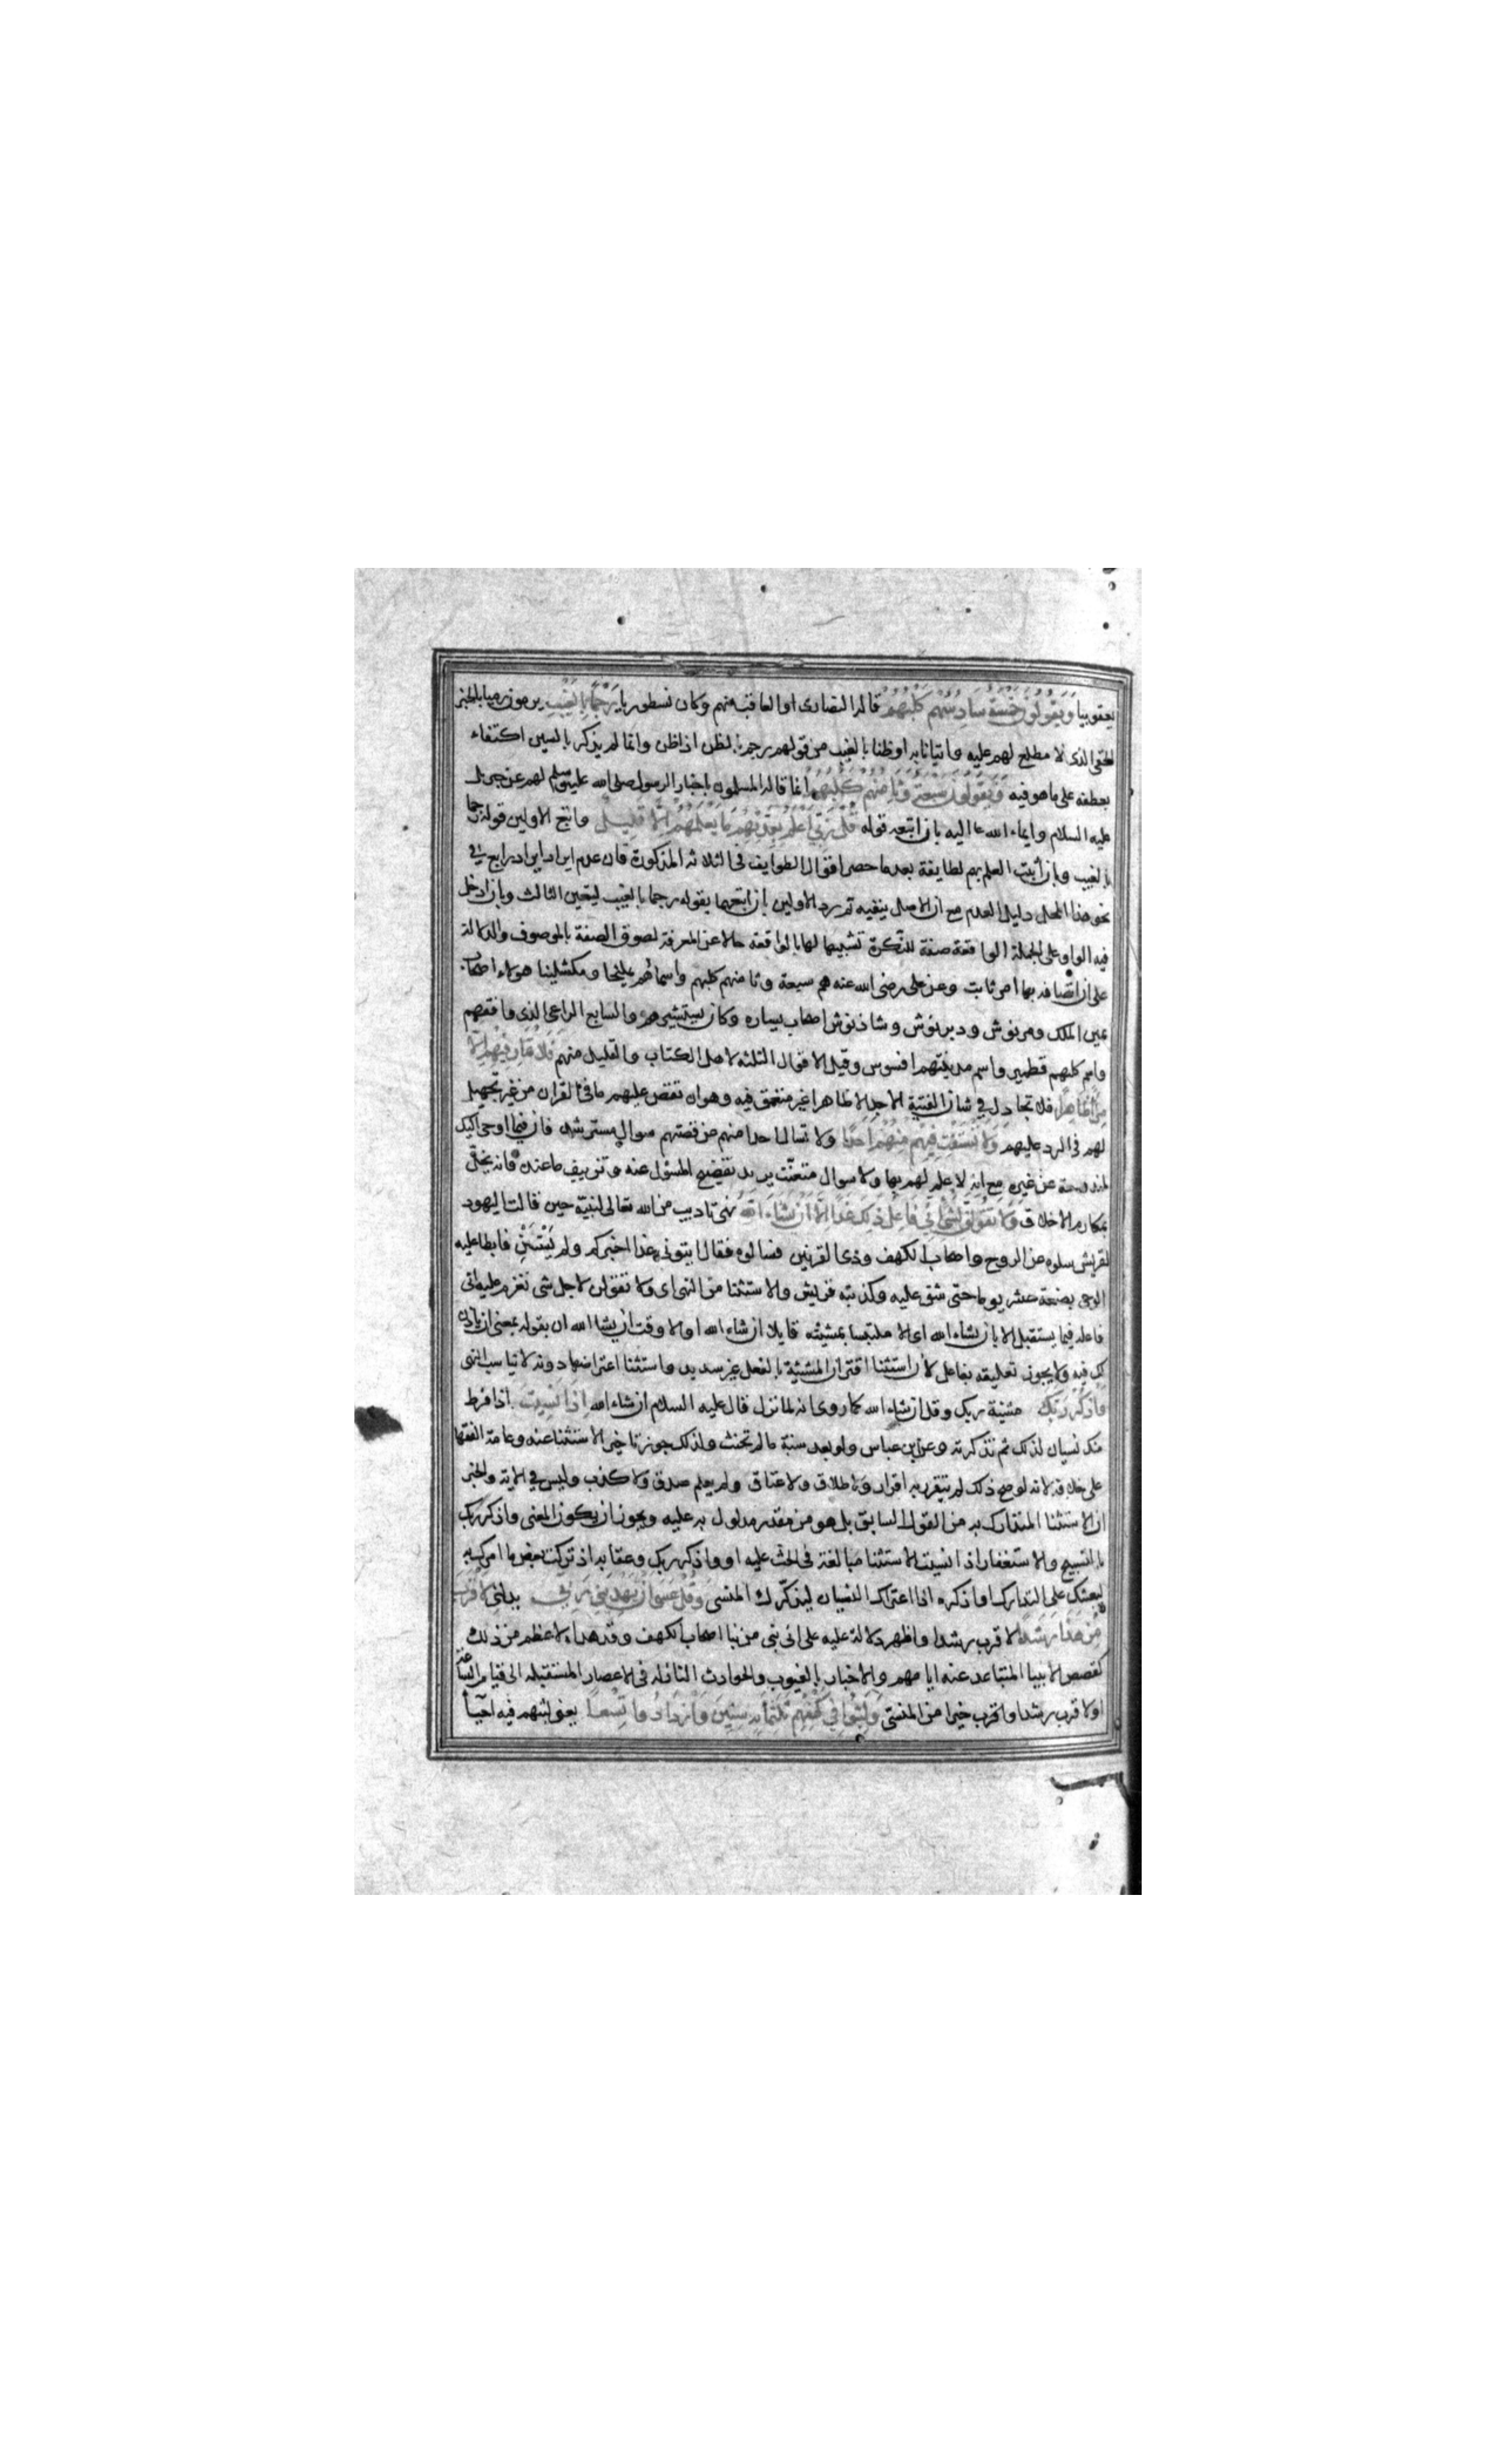 يعقوبيا وَيَقُولُونَ خَمْسَةٌ سَادِسُهُمْ كَلْبُهُمْ قاله النصارى او العاقب منهم وكان نسطوريا رَجْمًا بِالْغَيْبِ يرمون رميا بالخبر
الخفى الذى لا مطلع لهم عليه واتيانا به او ظنا بالغيب من قولهم رجم بالظن اذا ظن وانما لم يذكر بالسين اكتفاء
بعطفه على ما هو فيه وَيَقُولُونَ سَبْعَةٌ وَثَامِنُهُمْ كَلْبُهُمْ انما قاله المسلمون باخبار الرسول صلى الله عليه وسلم لهم عن جبريل
عليه السلام وايماء الله تعا اليه بان اتبعه قوله قُلْ رَبِّي أَعْلَمُ بِعِدَّتِهِمْ مَا يَعْلَمُهُمْ إِلَّا قَلِيلٌ واتبع الاولين قوله رجما
بالغيب وبان أثبت العلم بهم لطايفة بعد ما حصر اقوال الطوايف فى الثلاثة المذكورة فان عدم ايراد رابع في
نحو هذا المحل دليل العدم مع ان الاصل ينفيه ثم رد الاولين بان اتبعهما بقوله رجما بالغيب ليتعين الثالث وبان ادخل
فيه الواو على الجملة الواقعة صفة للنكرة تشبيها لها بالواقعة حالا عن المعرفة لصوق الصفة بالموصوف والدلالة
على ان اتصافه بها امر ثابت وعن على رضى الله عنه هم سبعة وثامنهم كلبهم واسمائهم يمليخا ومكشلينا هولاء اصحاب
يمين الملك ومرنوش ودبرنوش وشاذنوش اصحاب يساره وكان يستشيرهم والسابع الراعى الذى وافقهم
واسم كلبهم قطمير واسم مدينتهم افسوس وقيل الاقوال الثلثه لاهل الكتاب والقليل منهم فَلَا تُمَارِ فِيهِمْ إِلَّا
مِرَاءً ظَاهِرًا فلا تجادل في شان الفتية الا جدالا ظاهرا غير متعمق فيه وهو ان تقص عليهم ما فى القران من غير تجهيل
لهم فى الرد عليهم وَلَا تَسْتَفْتِ فِيهِمْ مِنْهُمْ أَحَدًا ولا تسال احدا منهم عن قصتهم سوال مسترشد فان فيما اوحى اليك
لمندوحة عن غيره مع انه لا علم لهم بها ولا سوال متعنت يريد تفضيح المسئول عنه وتزييف ما عنده فانه يخل
بمكارم الاخلاق وَلَا تَقُولَنَّ لِشَيْءٍ إِنِّي فَاعِلٌ ذَلِكَ غَدًا إِلَّا أَنْ يَشَاءَ اللَّهُ نهى تاديب من الله تعالى لنبيه حين قالت اليهود
لقريش سلوه عن الروح واصحاب الكهف وذى القرنين فسالوه فقال ايتونى غدا اخبركم ولم يَسْتَثْنِ فابطا عليه
الوحى بضعة عشر يوما حتى شق عليه وكذبته قريش والاستثنا من النهى اى ولا تقولن لاجل شى تعزم عليه انى
فاعله فيما يستقبل الا بان يشاء الله اى الا ملتبسا بمشيئته قايلا ان شاء الله او الا وقت ان يشا الله ان يقوله بمعنى ان ياذن
لك فيه ولا يجوز تعليقه بفاعل لان استثنا اقتران المشيئة بالفعل غير سديد واستثنا اعتراضها دونه لا يناسب النهى
وَاذْكُرْ رَبَّكَ مشيئة ربك وقل ان شاء الله كما روى انه لما نزل قال عليه السلام ان شاء الله إِذَا نَسِيتَ اذا فرط
منك نسيان لذلك ثم تذكرته وعن ابن عباس ولو بعد سنة ما لم تحنث ولذلك جوز تاخير الاستثنا عنه وعامة الفقها
على خلافه لانه لو صح ذلك لم يتقرر به اقرار ولا طلاق ولا عتاق ولم يعلم صدق ولا كذب وليس في الاية والخبر
ان الاستثنا المتدارك به من القول السابق بل هو من مقدر مدلول به عليه ويجوز ان يكون المعنى واذكر ربك
بالتسبيح والاستغفار اذا نسيت الاستثنا مبالغة فى الحث عليه او واذكر ربك وعقابه اذ تركت بعض ما امرك به
ليبعثك على التدارك او اذكره اذا اعتراك النسيان ليذكّرك المنسى وَقُلْ عَسَى أَنْ يَهْدِيَنِي رَبِّي يدلنى لِأَقْرَبَ
مِنْ هَذَا رَشَدًا لاقرب رشدا واظهر دلالة عليه على انى نبى من نبا اصحاب الكهف وقد هداه لاعظم من ذلك
كقصص الانبيا المتباعد عنه ايامهم والاخبار بالغيوب والحوادث النازله فى الاعصار المستقبله الى قيام الساعة
او لاقرب رشدا واقرب خيرا من المنسى وَلَبِثُوا فِي كَهْفِهِمْ ثَلَثَمِائَةٍ سِنِينَ وَازْدَادُوا تِسْعًا يعنى لبثهم فيه احيآ